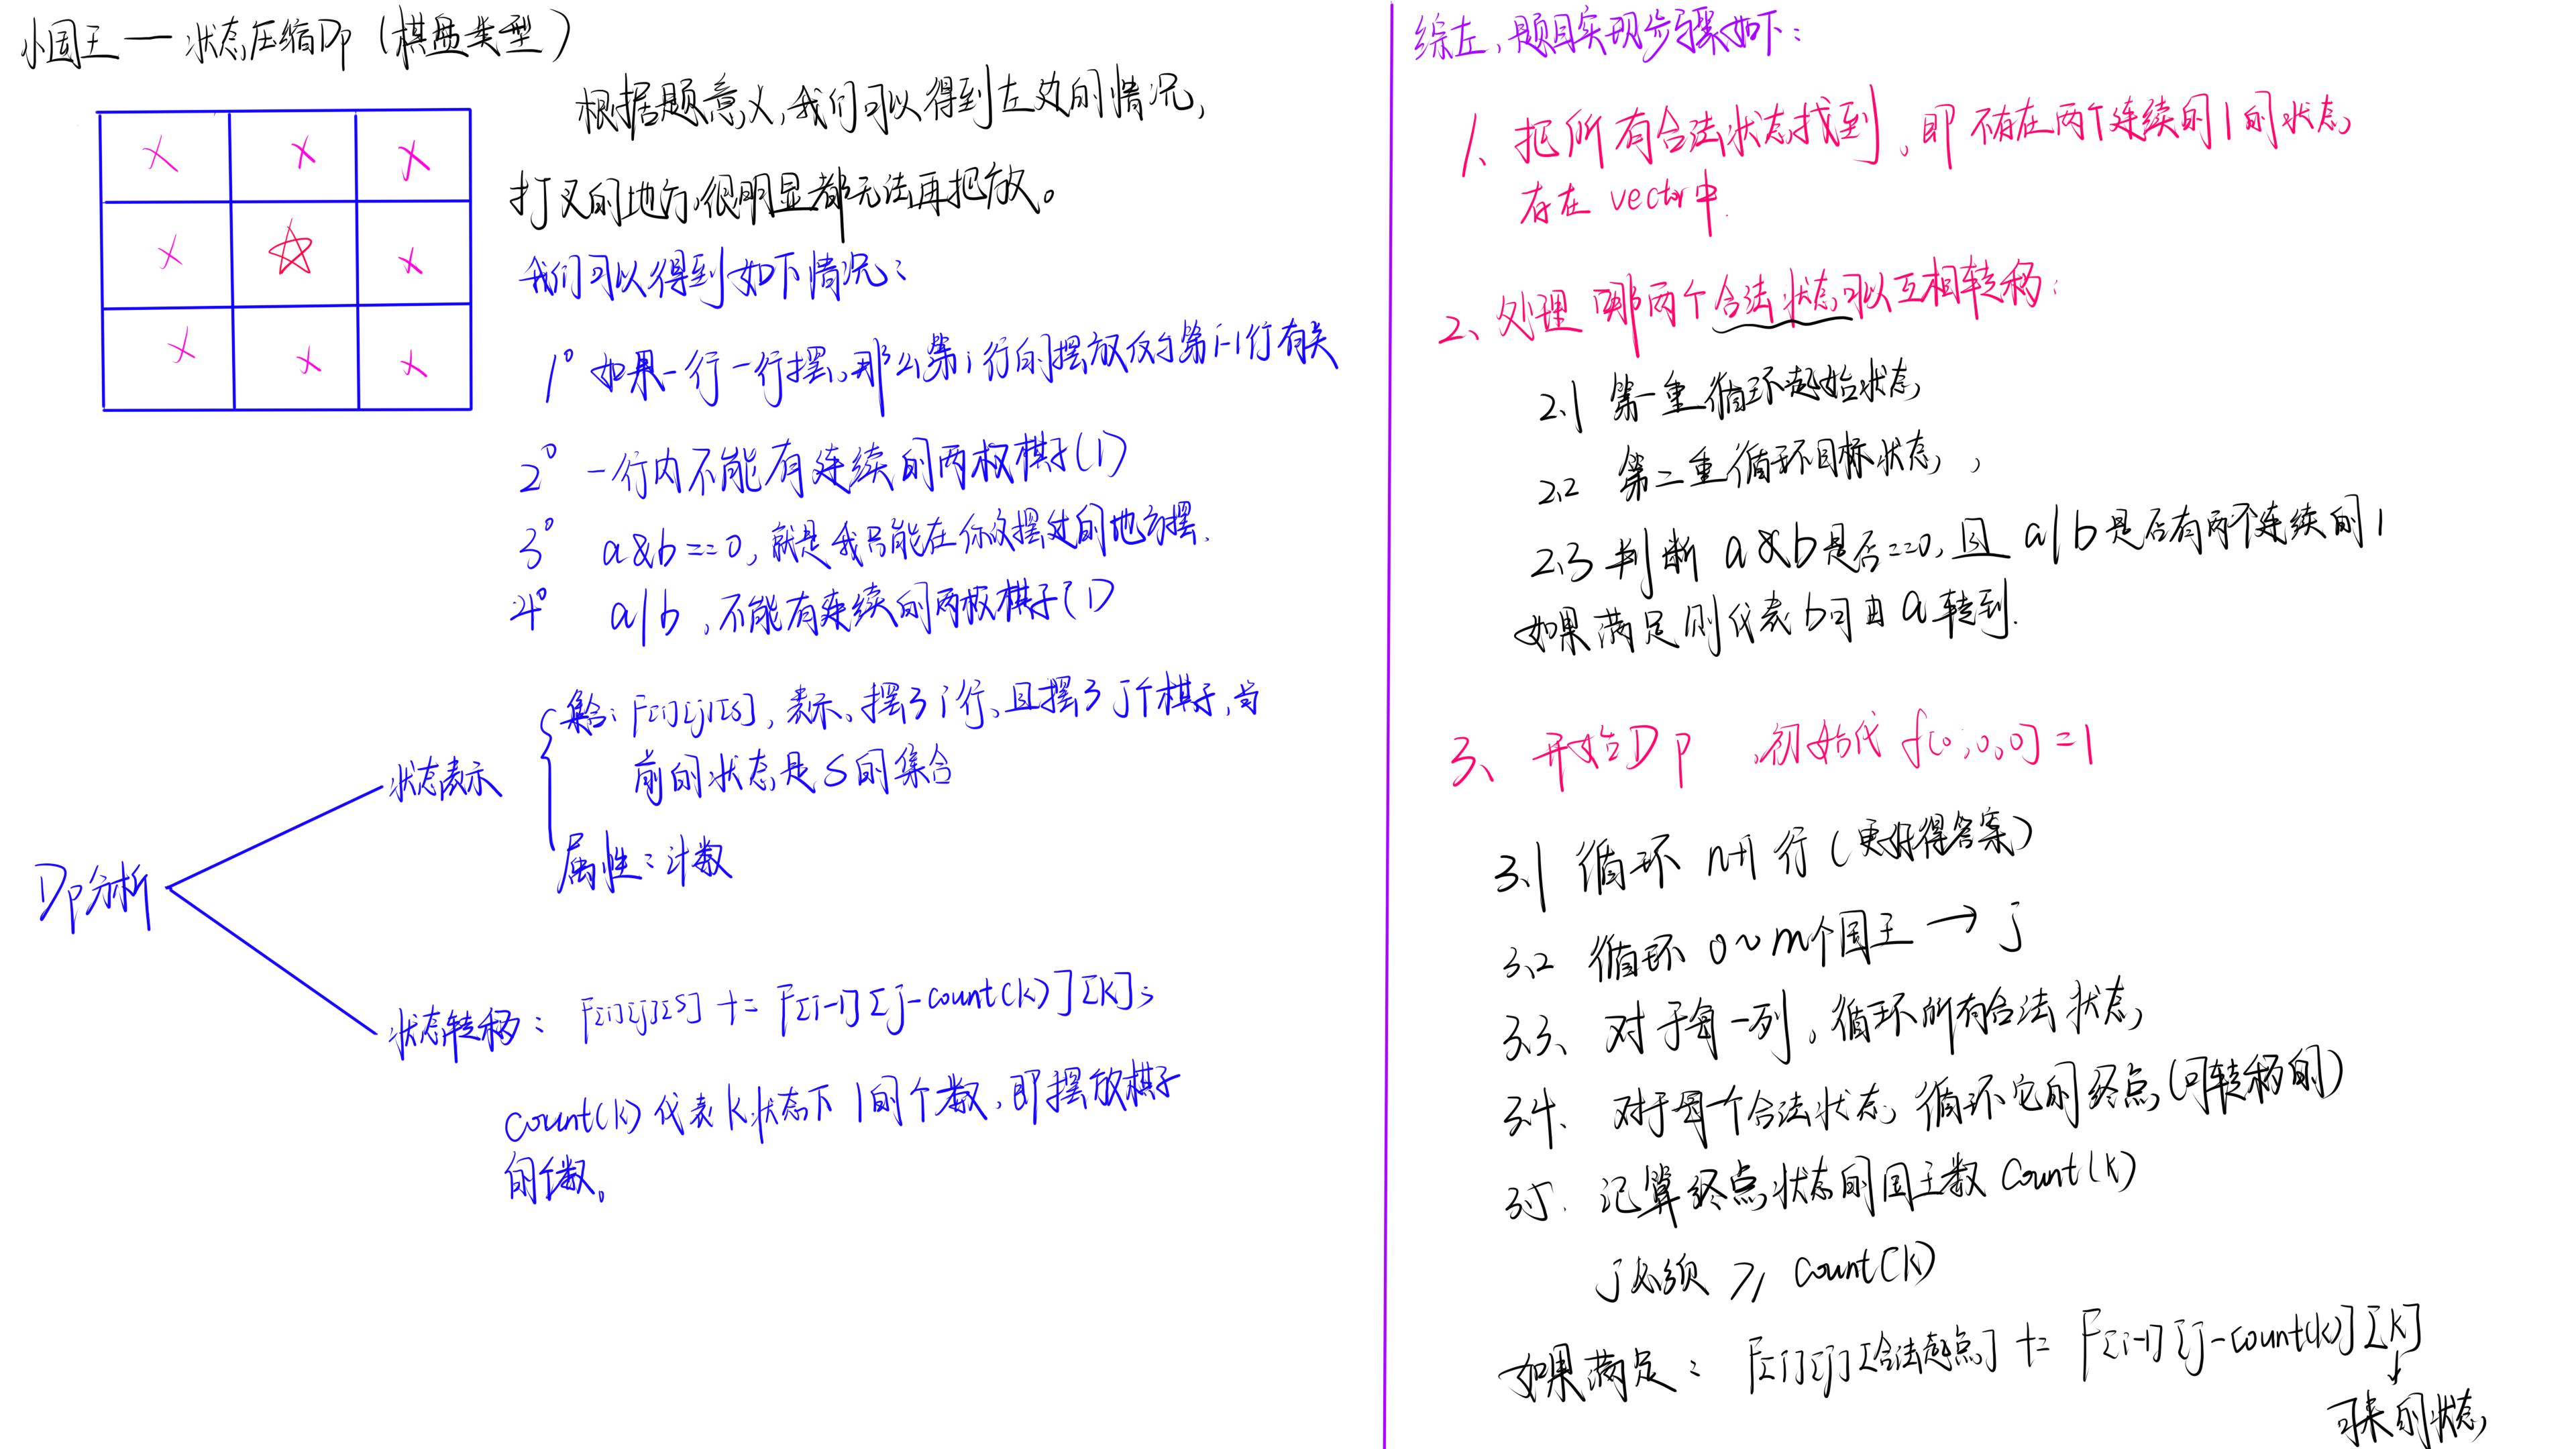 小国王一状态压缩Dp（棋盘类型）
根据题意义,我们可以得到左边的情况,
打叉的地方,很明显都无法再把放。
我们可以得到如下情况：
1° 如果一行一行摆,那么第i行的摆放仅与第i-1行有关
2° 一行内不能有连续的两枚棋子(1)
3° a&b==0,就是我只能在你没摆过的地方摆.
4° a|b,不能有连续的两枚棋子(1)
Dp分析
状态表示
集合: F[i][j][s],表示、摆了i行、且摆了j个棋子,当
前的状态是S的集合
属性：计数
状态转移： F[i][j][s] += F[i-1][j-count(k)][k];
count(k)代表k状态下1的个数,即摆放棋子
的个数。
综左,题目实现步骤如下：
1、把所有合法状态找到,即不存在两个连续的1的状态
存在vector中.
2、处理哪两个合法状态可以互相转移：
2.1 第一重循环起始状态
2.2 第二重循环目标状态,
2.3 判断 a&b是否==0,且 a|b是否有两个连续的1
如果满足则代表b可由a转到.
3、开始Dp ,初始化 f[0,0,0]=1
3.1 循环 n+1 行(更好得答案)
3.2 循环 0~m个国王 → j
3.3、对于每一列,循环所有合法状态
3.4、对于每个合法状态,循环它的终点(可转移的)
3.5. 记算终点状态的国王数 Count(k)
j必须 ≥ count(k)
如果满足： F[i][j][合法起点] += F[i-1][j-count(k)][k]
可来的状态